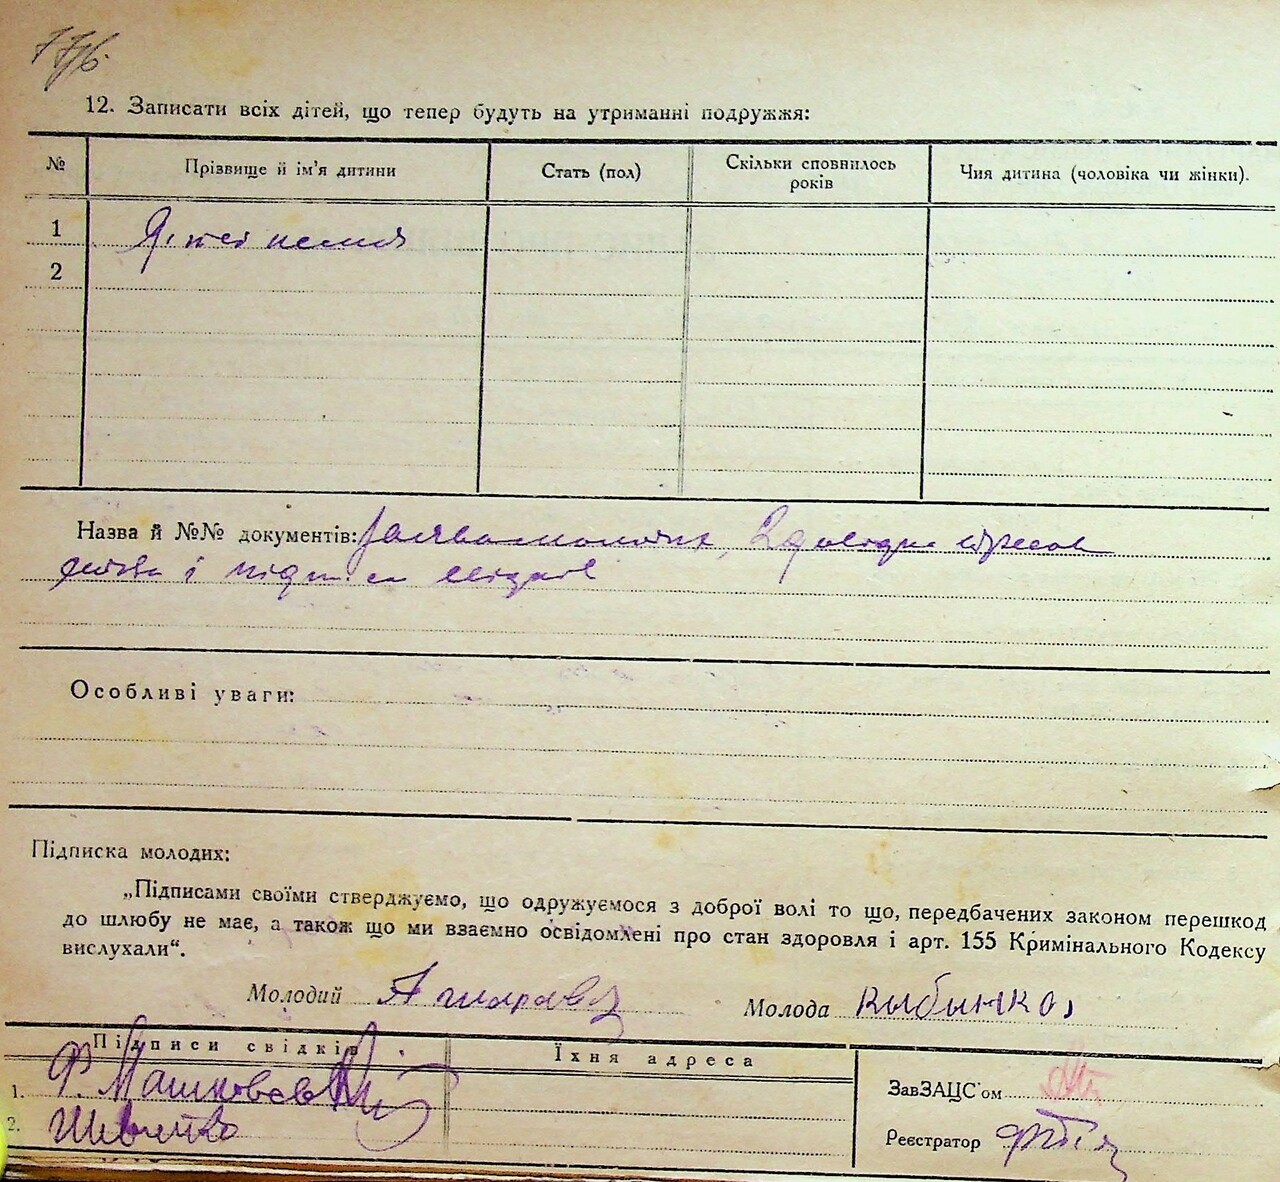 12. Записати всіх дітей, що тепер будуть на утриманні подружжя:
№ Прізвище й ім'я дитини Стать (пол) Скільки сповнилось років Чия дитина (чоловіка чи жінки).
1 Дітей немає
2
Назва й №№ документів:
і підписи свідків
Особливі уваги:
Підписка молодих:
„Підписами своїми стверджуємо, що одружуємося з доброї волі то що, передбачених законом перешкод
до шлюбу не має, а також що ми взаємно освідомлені про стан здоровля і арт. 155 Кримінального Кодексу
вислухали“.
Молодий Молода
Підписи свідків Їхня адреса
1. Ф. ЗавЗАЦС'ом
2. Реєстратор